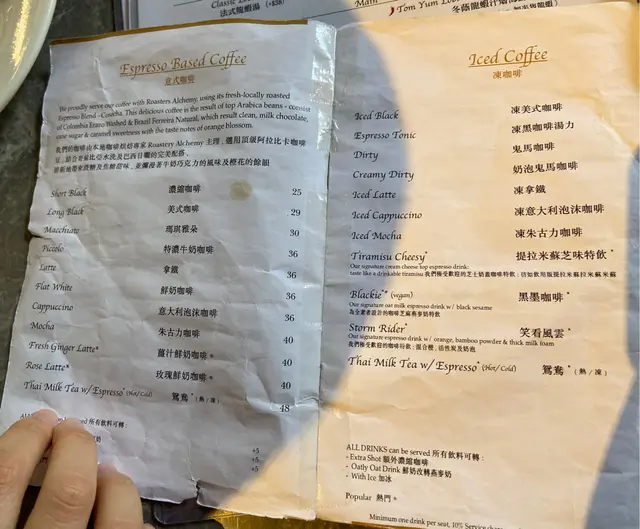 法式龍蝦湯 (+$38)
Main
Tom Yum
Espresso Based Coffee
意式咖啡
We proudly serve our coffee with Roasters Alchemy, using its fresh-locally roasted
Espresso Blend - Concha. This delicious coffee is the result of top Arabica beans - consist
of Colombia Eraso Washed & Brazil Ferreira Natural, which result clean, milk chocolate,
cane sugar & caramel sweetness with the taste notes of orange blossom.
我們的咖啡由本地咖啡烘焙專家 Roastery Alchemy 主理,選用頂級阿拉比卡咖啡
Short Black 濃縮咖啡 25
Long Black 美式咖啡 29
Macchiato 瑪琪雅朵 30
Piccolo 特濃牛奶咖啡 36
Latte 拿鐵 36
Flat White 鮮奶咖啡 36
Cappuccino 意大利泡沫咖啡 36
Mocha 朱古力咖啡 40
Fresh Ginger Latte* 薑汁鮮奶咖啡* 40
Rose Latte* 玫瑰鮮奶咖啡* 40
Thai Milk Tea w/ Espresso* (Hot/Cold) 鴛鴦* (熱/凍) 48
所有飲料可轉:
+5
+5
+5
Iced Coffee
凍咖啡
Iced Black 凍美式咖啡
Espresso Tonic 凍黑咖啡湯力
Dirty 鬼馬咖啡
Creamy Dirty 奶泡鬼馬咖啡
Iced Latte 凍拿鐵
Iced Cappuccino 凍意大利泡沫咖啡
Iced Mocha 凍朱古力咖啡
Tiramisu Cheesy* 提拉米蘇芝味特飲*
Our signature cream cheese top espresso drink:
taste like a drinkable tiramisu 我們極受歡迎的芝士奶蓋咖啡特飲:猶如飲用版提拉米蘇
Blackie* (vegan) 黑墨咖啡*
Our signature oat milk espresso drink w/ black sesame
為全素者設計的咖啡芝麻燕麥奶特飲
Storm Rider* 笑看風雲*
Our signature espresso drink w/ orange, bamboo powder & thick milk foam
我們極受歡迎的咖啡特飲:混合橙、活性炭及奶泡
Thai Milk Tea w/ Espresso* (Hot/Cold) 鴛鴦* (熱/凍)
ALL DRINKS can be served 所有飲料可轉:
- Extra Shot 額外濃縮咖啡
- Oatly Oat Drink 鮮奶改轉燕麥奶
- With Ice 加冰
Popular 熱門*
Minimum one drink per seat, 10% Service